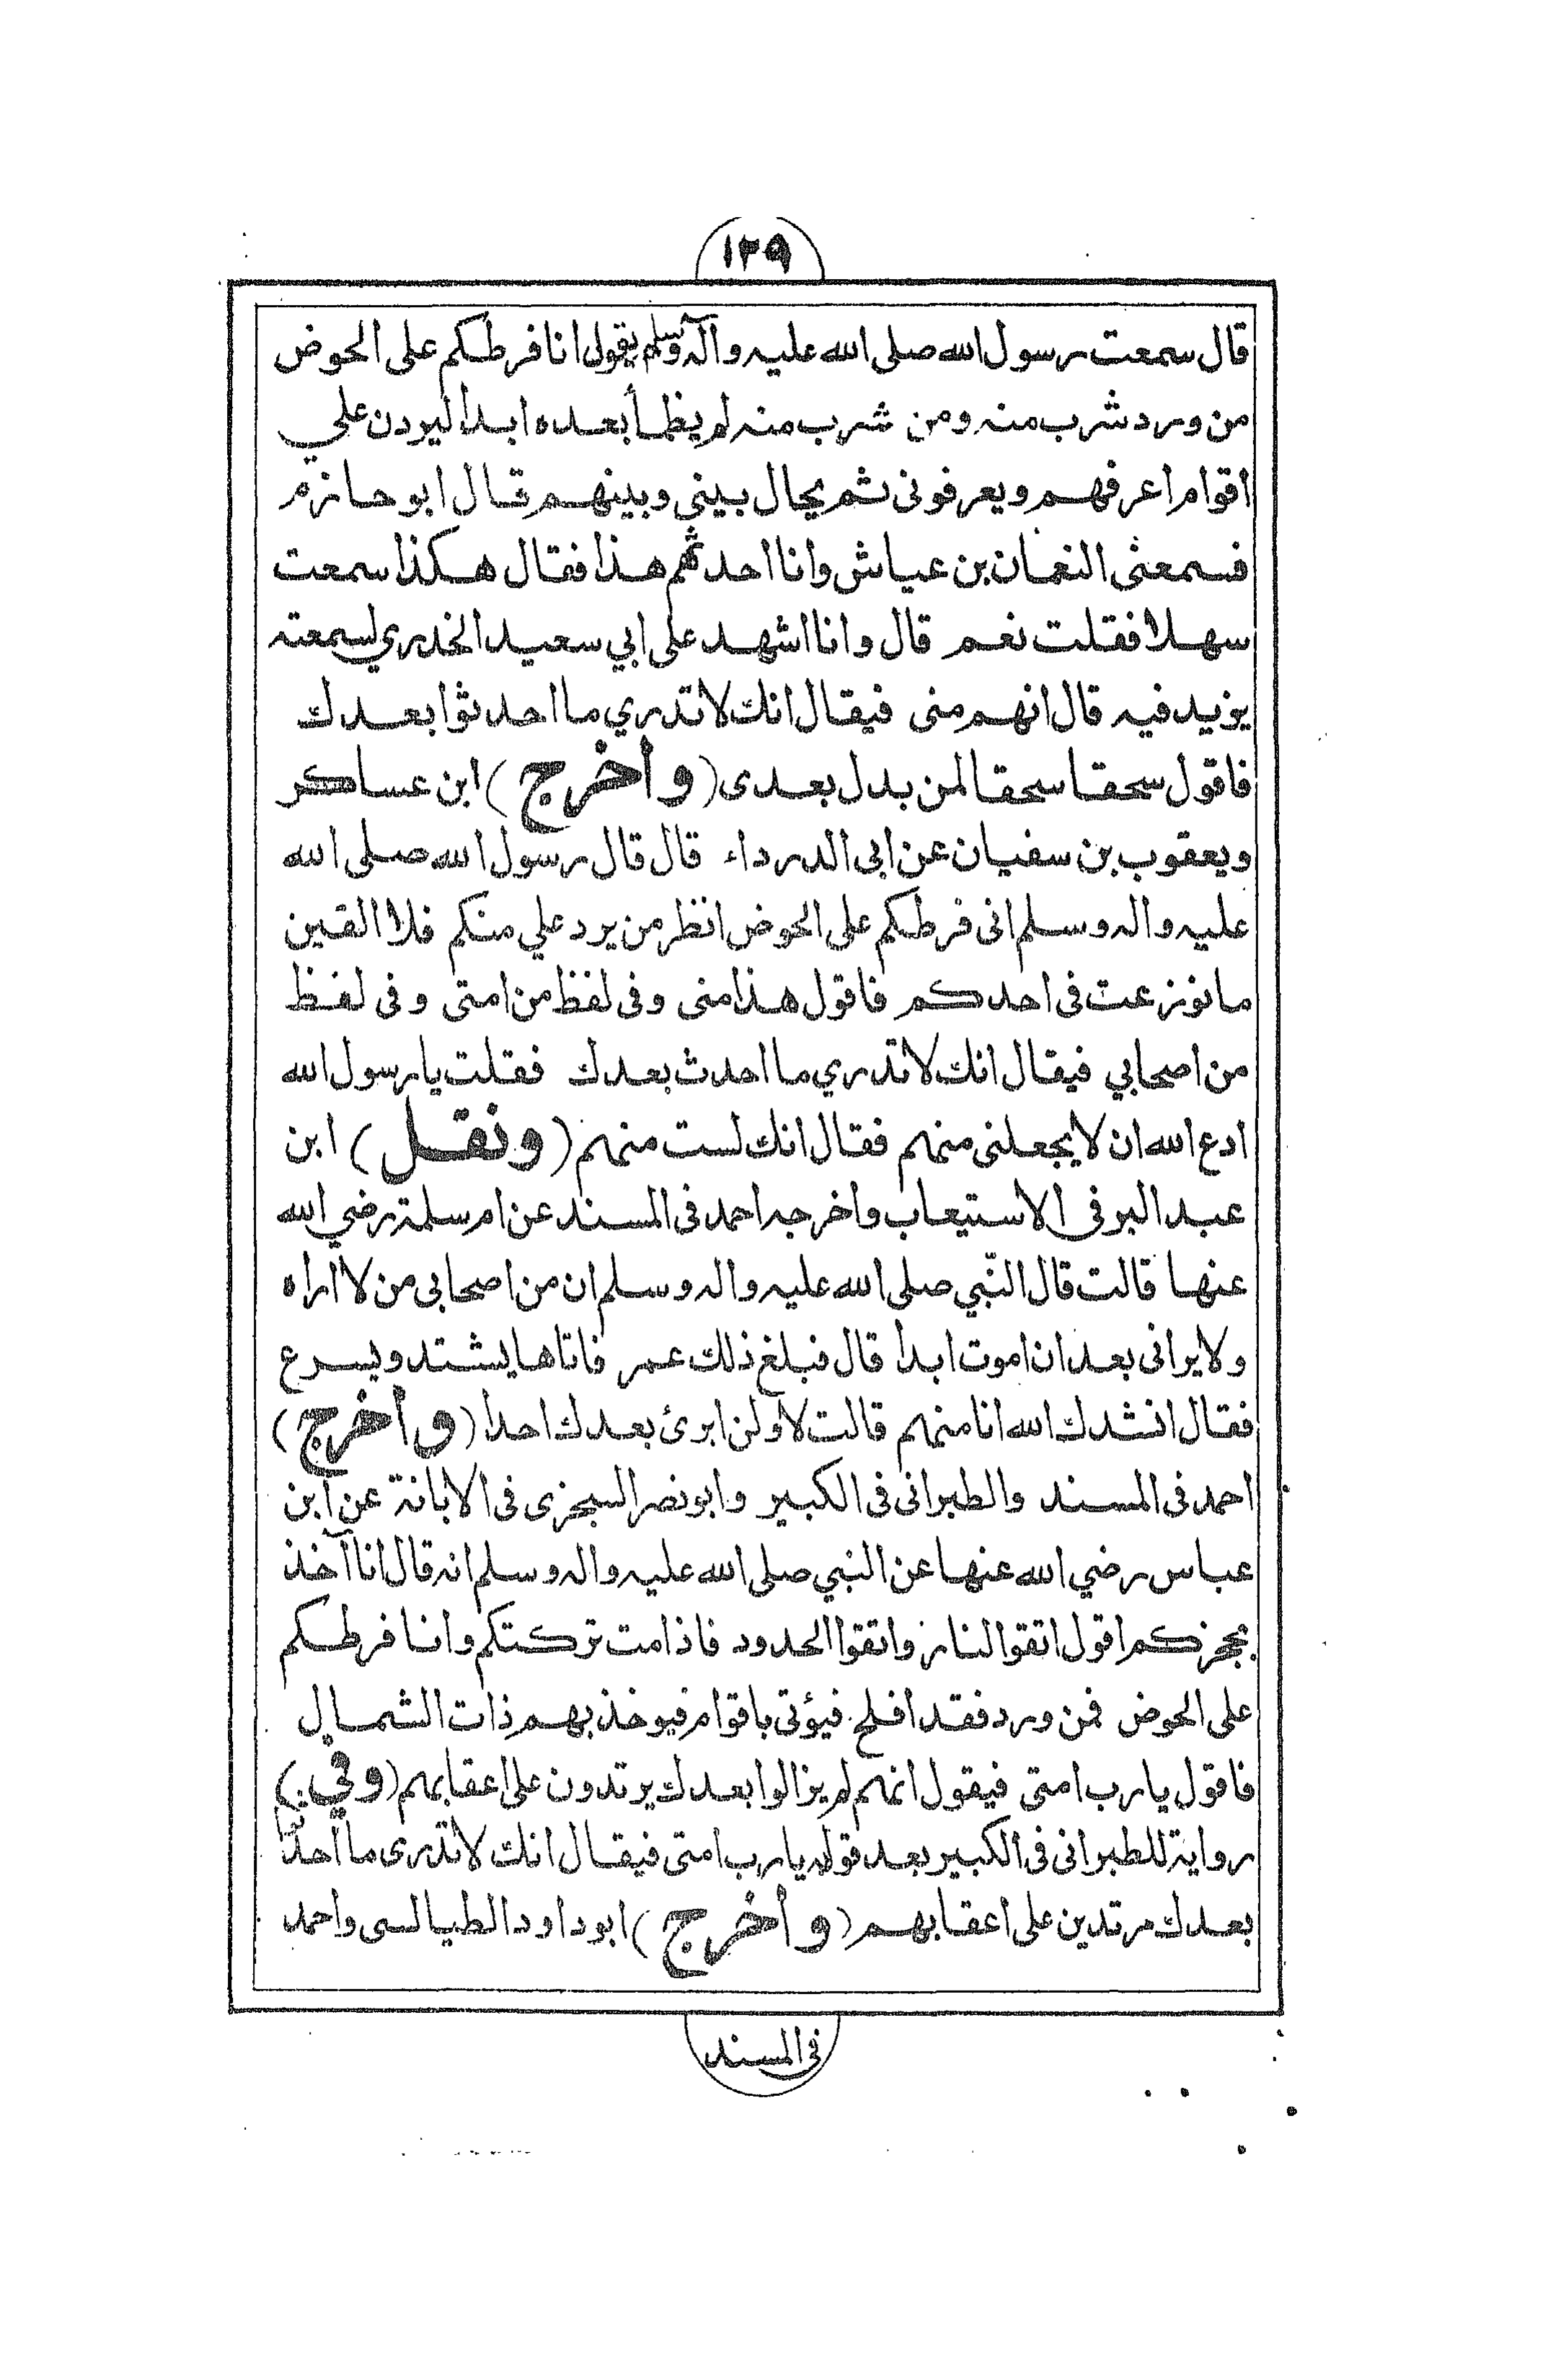 ١٢٩
قال سمعت رسول الله صلى الله عليه وآله وسلم يقول انا فرطكم على الحوض
من ورد شرب منه ومن شرب منه لم يظمأ بعده ابدا ليردن علي
اقوام اعرفهم ويعرفونى ثم يحال بينى وبينهم قال ابو حازم
فسمعنى النعمان بن عياش وانا احدثهم هذا فقال هكذا سمعت
سهلا فقلت نعم قال وانا اشهد على ابي سعيد الخدري لسمعته
يزيد فيه قال انهم منى فيقال انك لا تدري ما احدثوا بعدك
فاقول سحقا سحقا لمن بدل بعدى (وأخرج) ابن عساكر
ويعقوب بن سفيان عن ابى الدرداء قال قال رسول الله صلى الله
عليه واله وسلم انى فرطكم على الحوض انظر من يرد علي منكم فلا القين
ما نوزعت فى احدكم فاقول هذا منى وفى لفظ من امتى وفى لفظ
من اصحابي فيقال انك لا تدري ما احدث بعدك فقلت يا رسول الله
ادع الله ان لا يجعلنى منهم فقال انك لست منهم (ونقل) ابن
عبد البر فى الاستيعاب واخرجه احمد فى المسند عن ام سلمة رضي الله
عنها قالت قال النّبي صلى الله عليه واله وسلم ان من اصحابى من لا اراه
ولا يرانى بعد ان اموت ابدا قال فبلغ ذلك عمر فاتاها يشتد ويسرع
فقال انشدك الله انا منهم قالت لا ولن ابرئ بعدك احدا (وأخرج)
احمد فى المسند والطبرانى فى الكبير وابو نصر السجزى فى الابانة عن ابن
عباس رضي الله عنها عن النبي صلى الله عليه واله وسلم انه قال انا آخذ
بحجزكم اقول اتقوا النار واتقوا الحدود فاذا مت تركتكم وانا فرطكم
على الحوض فمن ورد فقد افلح فيؤتى باقوام فيوخذ بهم ذات الشمال
فاقول يا رب امتى فيقول انهم لم يزالوا بعدك يرتدون على اعقابهم (وفي)
رواية للطبرانى فى الكبير بعد قوله يا رب امتى فيقال انك لا تدرى ما احدثوا
بعدك مرتدين على اعقابهم (وأخرج) ابو داود الطيالسى واحمد
فى المسند